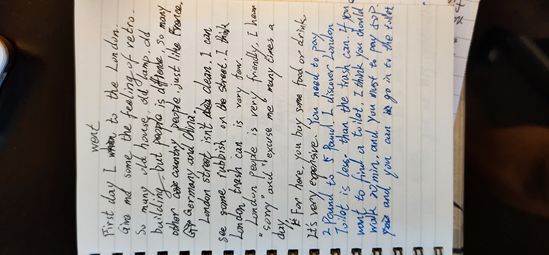 went
First day I to the London.
Give me some the feeling of retro.
So many old house, old lamp, old
building but people is so many
other country people. Just like France,
Germany and China
London street isn't clean. I can
see some rubbish on the street. I think
London trash can is very few.
London people is very friendly. I hear
"sorry" and excuse me many times a
day
For here, you buy some food or drink.
It's very expensive. You need to pay
2 Pound to 5 Pound. I discover London
Toilet is less than the trash can. If you
want to find a toilet. I think you should
walk 20 min. and you must to pay 50P.
and you can go in to the toilet